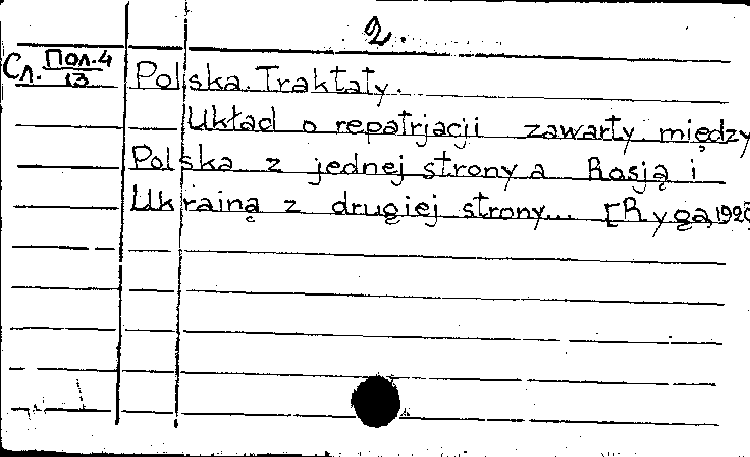 2.
Сл. Пол.4
13
Polska. Traktaty.
Układ o repatrjacji zawarty między
Polska z jednej strony a Rosją i
Ukrainą z drugiej strony... [Ryga, 192